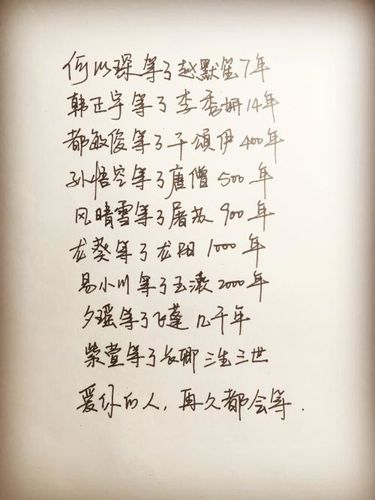 何以琛等了赵默笙7年
韩正宇等了李秀妍14年
都敏俊等了千頌伊400年
孙悟空等了唐僧500年
风晴雪等了屠苏900年
龙葵等了龙阳1000年
易小川等了玉漱2000年
夕瑶等了飞蓬几千年
紫萱等了长卿三生三世
爱你的人，再久都会等.